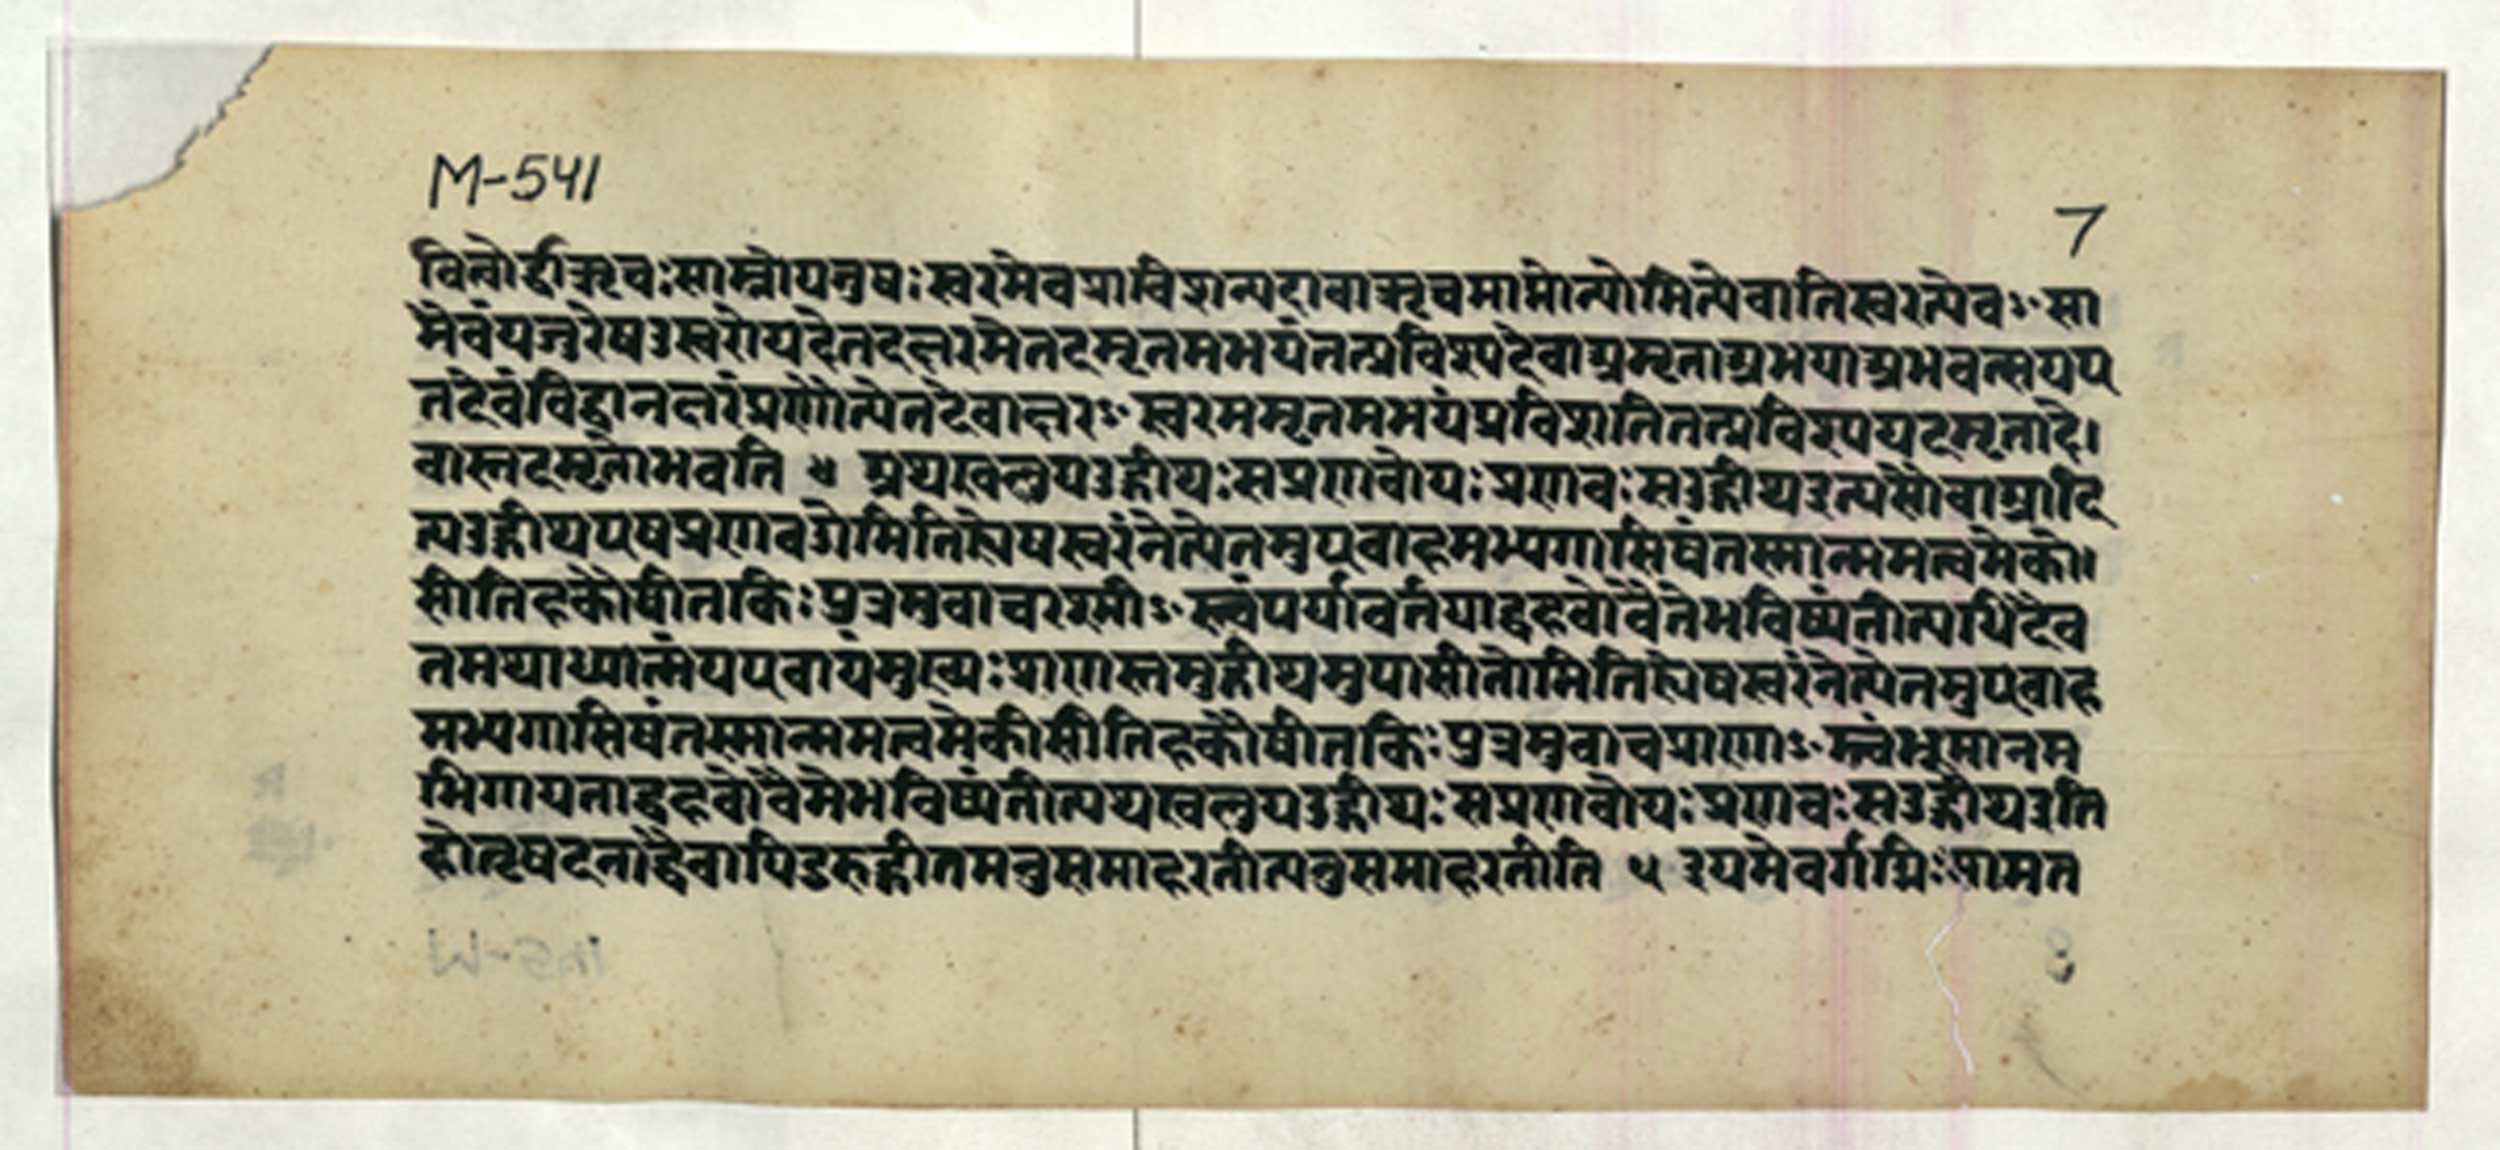 M-541
7
वित्वोर्द्धाऋचःसाम्नोयजुषःस्वरमेवप्राविशन्यदावाऋचमाप्नोत्योमित्येवातिस्वरत्येवꣳसा
मैवंयजुरेषउस्वरोयदेतदक्षरमेतदमृतमभयंतत्प्रविश्यदेवाअमृताअभयाअभवन्सयए
तदेवंविद्वानक्षरंप्रणौत्येतदेवाक्षरꣳस्वरममृतमभयंप्रविशतितत्प्रविश्ययदमृतादे।
वास्तदमृतोभवति ४ अथखलुयउद्गीथःसप्रणवोयःप्रणवःसउद्गीथइत्यसौवाआदि
त्यउद्गीथएषप्रणवओमितिह्येषस्वरंनेत्येतमुएवाहमभ्यगासिषंतस्मान्ममत्वमेको॥
सीतिहकौषीतकिःपुत्रमुवाचरश्मीꣳस्त्वंपर्यावर्तयाद्बहवोवैतेभविष्यंतीत्यधिदैव
तमथाध्यात्मंयएवायंमुख्यःप्राणस्तमुद्गीथमुपासीतोमितिह्येषस्वरंनेत्येतमुएवाह
मभ्यगासिषंतस्मान्ममत्वमेकोसीतिहकौषीतकिःपुत्रमुवाचप्राणाꣳस्त्वंभूमानम
भिगायताद्बहवोवैमेभविष्यंतीत्यथखलुयउद्गीथःसप्रणवोयःप्रणवःसउद्गीथइति
होतृषदनाद्धैवापिदुरुद्गीतमनुसमाहरतीत्यनुसमाहरतीति ५ इयमेवर्गग्निःसामत